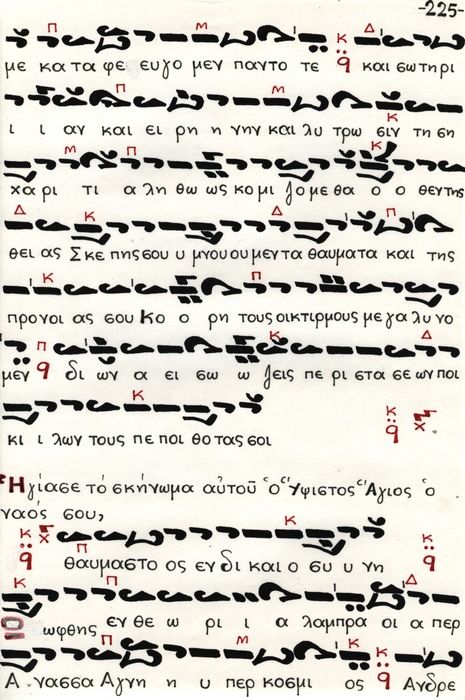 -225-
με κα τα φε ευγο μεν παντο τε και σωτηρι
ι ι αν και ει ρη η νην και λυ τρω σιν τη ση
χα ρι τι α λη θω ως κο μι ζο με θα ο ο θεν της
θει ας Σκε πης σου υ μνου ου μεν τα θαυματα και της
προνοι ας σου Κο ο ρη τους οικτιρμους με γα λυ νο
μεν δι ων α ει σω ω ζεις πε ρι στα σε ων ποι
κι ι λων τους πε ποι θο τας σοι
Ἡγίασε τό σκήνωμα αὐτοῦ ὁ Ὕψιστος Ἅγιος ὁ
ναός σου,
θαυμαστο ος εν δι και ο συ υ νη
ωφθης εν θε ω ρι ι α λαμπρα οι α περ
Α νασσα Αγνη η υ περ κοσμι ος Ανδρε